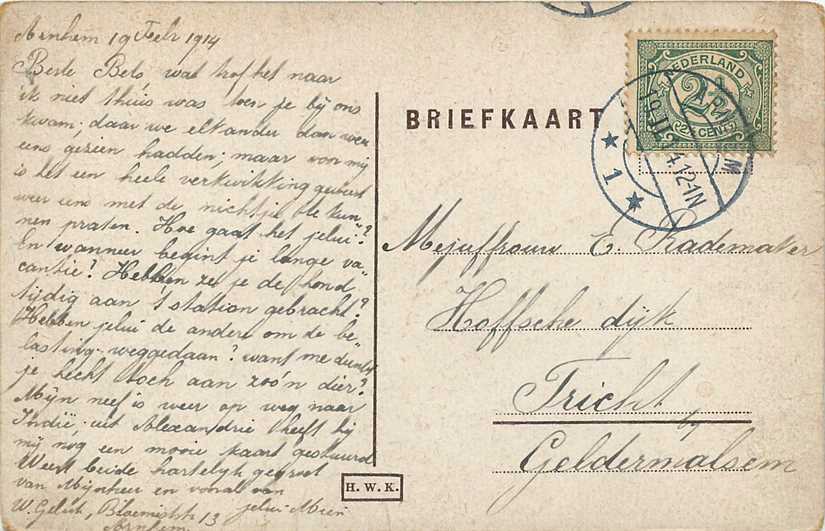 Arnhem 19 Febr 1914
Beste Bets wat trof het naar
ik niet thuis was toen je bij ons
kwam; daar we elkander dan weer
eens gezien hadden; maar voor mij
is het een heele verkwikking geweest
weer eens met de nichtjes te kun-
nen praten. Hoe gaat het jelui?
En wanneer begint je lange va-
cantie? Hebben ze je de hond
tijdig aan 't station gebracht?
Hebben jelui de andere om de be-
lasting weggedaan? want me dunkt
je hecht toch aan zoo'n dier?
Mijn neef is weer op weg naar
Indië; uit Alexandrië heeft hij
mij nog een mooie kaart gestuurd
Weest beide hartelijk gegroet
van Mijnheer en vooral van
jelui Mien
W. Geluk, Bloemistr 13
Arnhem
BRIEFKAART
NEDERLAND
2½
2½ CENT
★ 1 ★
Mejuffrouw E. Rademaker
Hoffsche dijk
Tricht
bij
Geldermalsem
H. W. K.